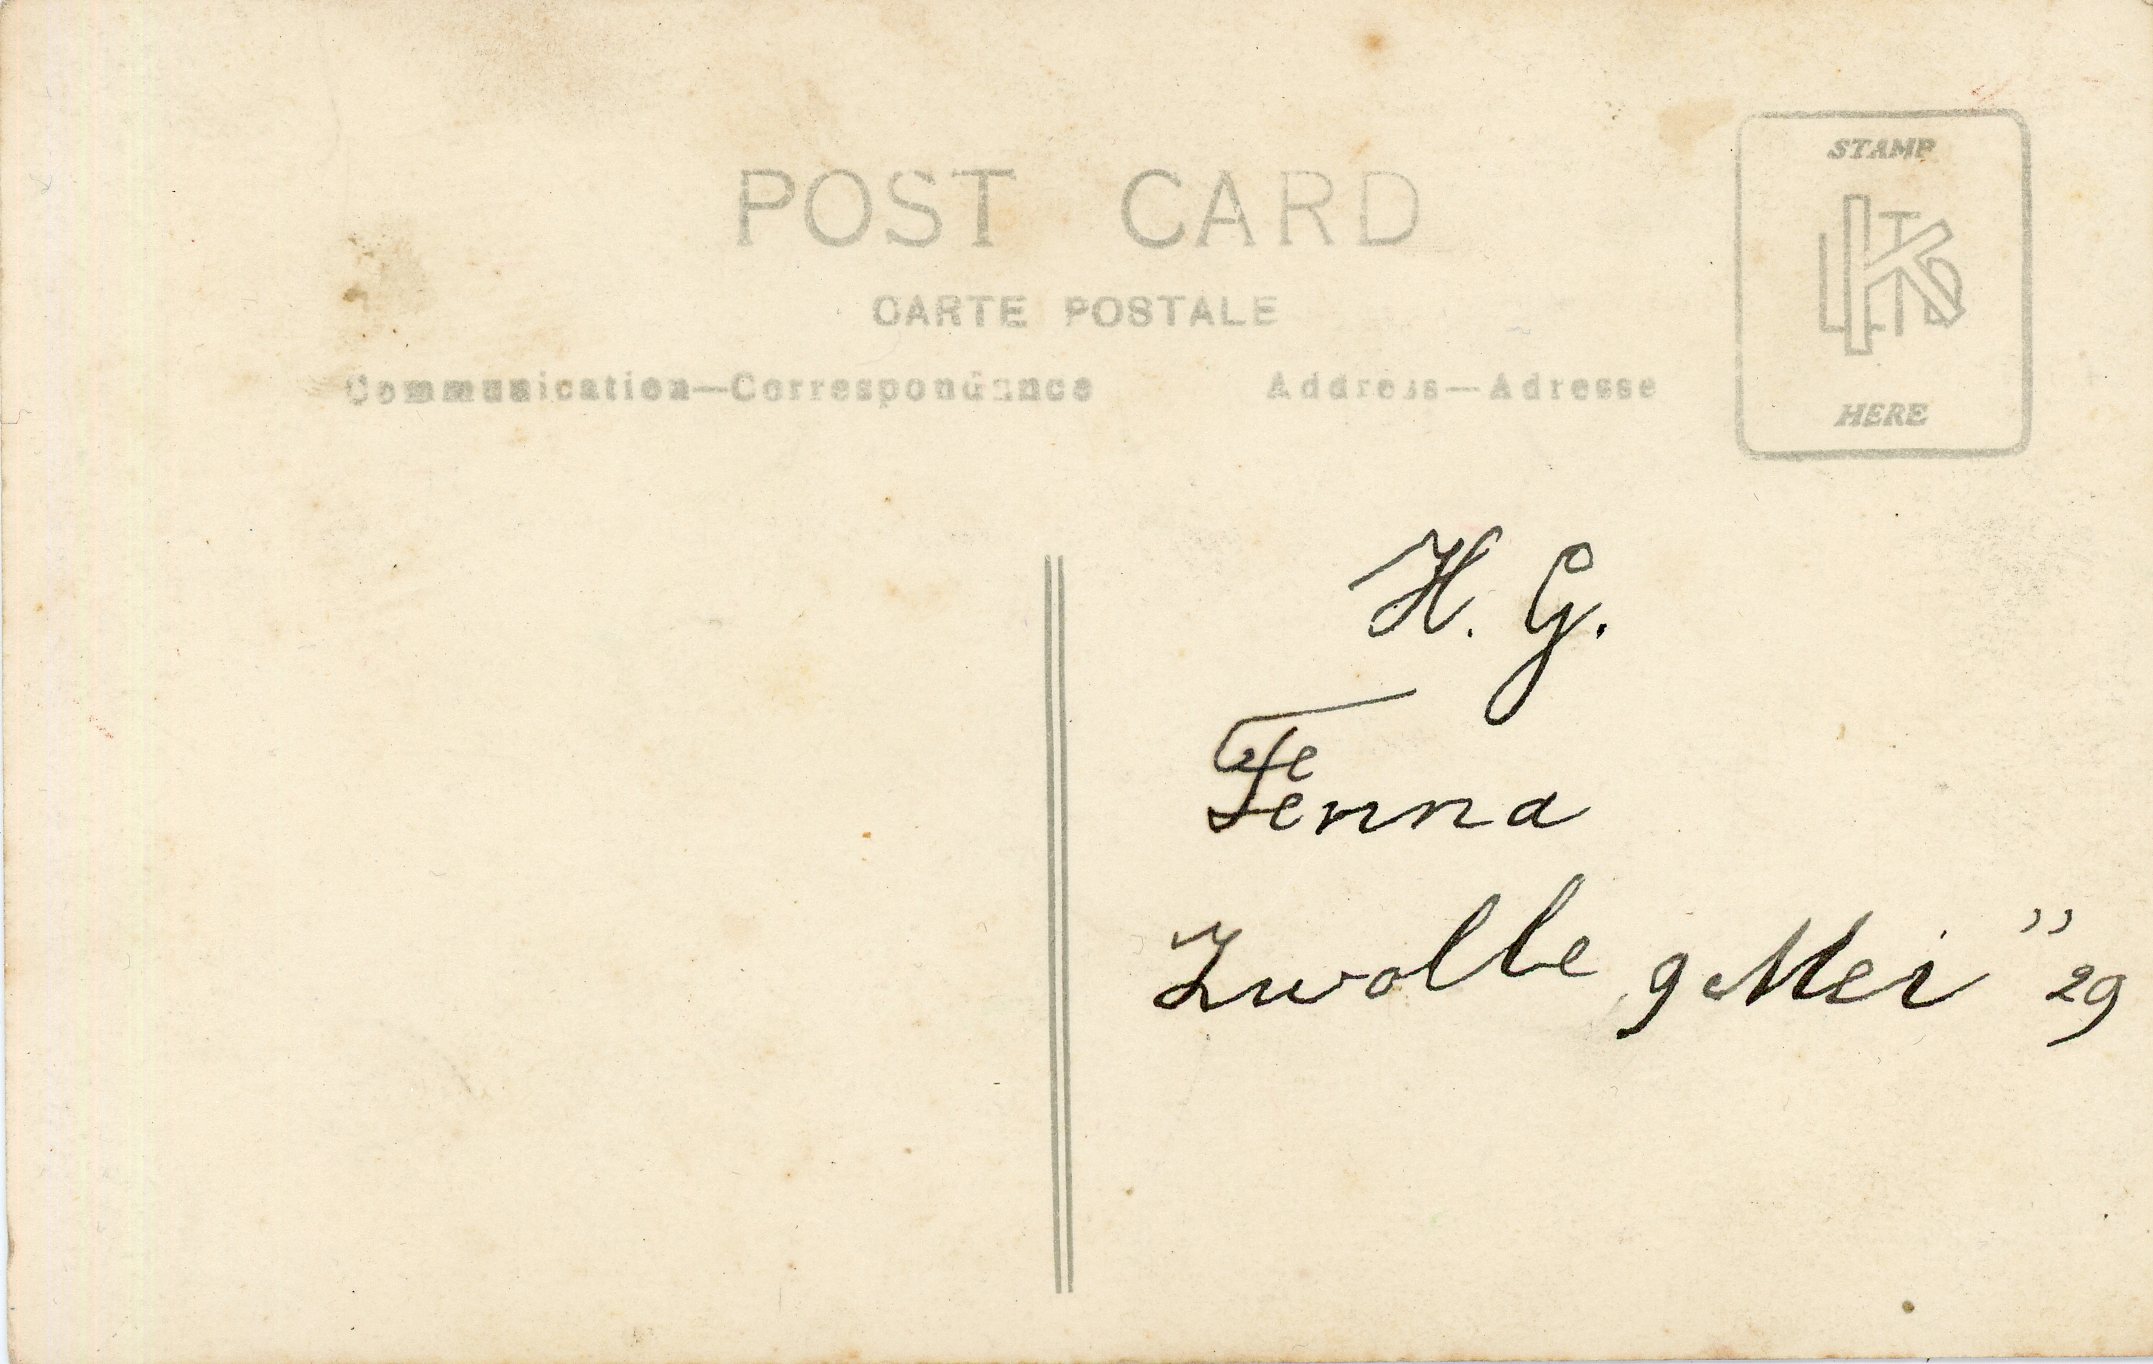 POST CARD
CARTE POSTALE
Communication—Correspondance
Address—Adresse
STAMP
K LTD
HERE
H. G.
Fenna
Zwolle 9 Mei "29